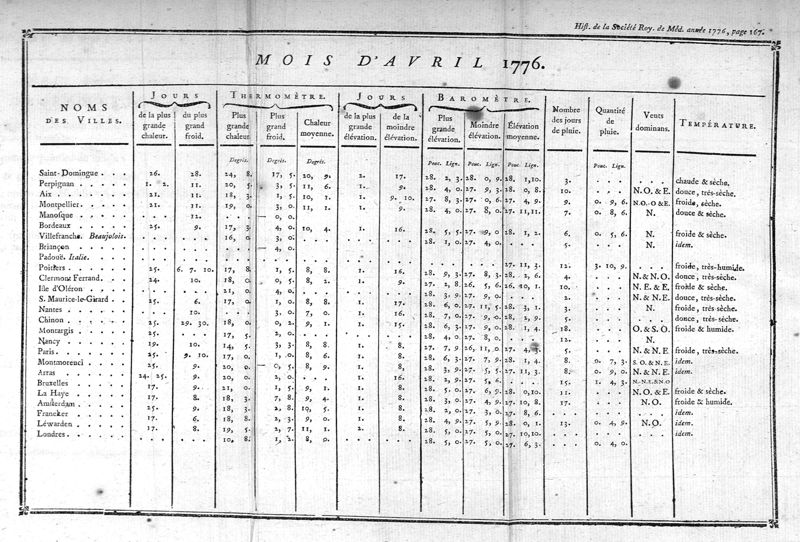 Hist. de la Société Roy. de Méd. année 1776, page 167.
MOIS D'AVRIL 1776.
NOMS DES VILLES. JOURS THERMOMÈTRE. JOURS BAROMÈTRE. Nombre des jours de pluie. Quantité de pluie. Vents dominans. TEMPÉRATURE.
de la plus grande chaleur. du plus grand froid. Plus grande chaleur Plus grand froid. Chaleur moyenne. de la plus grande élévation. de la moindre élévation. Plus grande élévation. Moindre élévation. Élévation moyenne.
Degrés. Degrés. Degrés. Pouc. Lign. Pouc. Lign. Pouc. Lign. Pouc. Lign.
Saint-Domingue 26. 28. 24, 8. 17, 5. 20, 9. 2. 17. 28. 2, 3. 28. 0, 9. 28. 1,10. 3. chaude & sèche.
Perpignan 1. 2. 11. 20, 5. 3, 5. 11, 6. 1. 9. 28. 4, 0. 27. 9, 3. 28. 0, 8. 10. N.O. & E. douce, très-sèche.
Aix 21. 11. 18, 3. 1, 5. 10, 1. 1. 9. 10. 27. 8, 3. 27. 0, 6. 27. 4, 9. 9. 0. 9, 6. N.O.-O & E. froide, sèche.
Montpellier 21. 11. 19, 0. 3, 0. 11, 1. 1. 9. 28. 4, 0. 27. 8, 0. 27. 11,11. 7. 0. 8, 6. N. douce & sèche.
Manosque 12. — 0, 0.
Bordeaux 25. 9. 17, 3. 4, 0. 10, 4. 1. 16. 28. 5, 5. 27. 9, 0. 28. 1, 2. 6. 0. 5, 6. N. froide & sèche.
Villefranche. Beaujolois. 16, 0. 3, 0. 28. 1, 0. 27. 4, 0. 5. N. idem.
Briançon — 4, 0.
Padoue. Italie. 27. 11, 3. 12. 3. 10, 9. froide, très-humide.
Poitiers 25. 6. 7. 10. 17, 8. 1, 5. 8, 8. 1. 16. 28. 9, 3. 27. 8, 3. 28. 2, 6. 4. N. & N.O. douce, très-sèche.
Clermont Ferrand. 24. 10. 18, 0. 0, 5. 8, 2. 1. 9. 27. 2, 8. 26. 5, 6. 26. 10, 1. 10. N. E. & E. froide & sèche.
Isle d'Oléron 21, 0. 4, 0. 28. 3, 9. 27. 9, 0. 2. N. & N.E. douce, très-sèche.
S. Maurice-le-Girard 25. 6. 17, 0. 1, 0. 8, 8. 1. 17. 28. 6, 0. 27. 11, 5. 28. 3, 1. 3. N. froide, très-sèche.
Nantes 10. 3, 0. 7, 0. 1. 16. 28. 7, 0. 27. 9, 0. 28. 2, 9. 5. douce, très-sèche.
Chinon 25. 29. 30. 18, 0. 0, 2. 9, 1. 1. 15. 28. 6, 3. 27. 9, 0. 28. 1, 4. 18. O. & S.O. froide & humide.
Montargis 25. 17, 5. 2, 0. 28. 4, 0. 27. 8, 0. 12. N.
Nancy 19. 10. 14, 5. 3, 3. 8, 8. 1. 8. 27. 7, 9. 26. 11, 0. 27. 4, 3. 5. N. & N.E. froide, très-sèche.
Paris 25. 9. 10. 17, 0. 1, 0. 8, 6. 1. 8. 28. 6, 3. 27. 7, 9. 28. 1, 4. 8. 0. 7, 3. S.O. & N.E. idem.
Montmorenci 25. 9. 20, 0. — 0, 5. 8, 9. 1. 8. 28. 3, 9. 27. 5, 5. 27. 11, 3. 8. 0. 9, 0. N. & N.E. idem.
Arras 24. 25. 9. 20, 0. 2, 0. 1. 16. 28. 2, 9. 27. 5, 6. 15. 1. 4, 3. N.-N.E & N.O
Bruxelles 17. 9. 21, 0. 1, 5. 9, 1. 1. 8. 28. 5, 0. 27. 6, 9. 28. 0,10. 11. N.O. & E. froide & sèche.
La Haye 17. 8. 18, 3. 7, 8. 9, 4. 1. 8. 28. 4, 3. 27. 4, 9. 27. 10, 8. 17. N.O. froide & humide.
Amsterdam 25. 9. 18, 3. 2, 8. 10, 5. 1. 8. 28. 2, 0. 27. 3, 0. 27. 8, 6. idem.
Francker 17. 6. 18, 8. 2, 3. 9, 0. 1. 8. 28. 4, 9. 27. 5, 9. 28. 0, 1. 13. 0. 4, 9. N.O. idem.
Léwarden 17. 8. 19, 5. 2, 7. 11, 1. 2. 8. 28. 5, 0. 27. 5, 0. 27. 10,10. idem.
Londres 10, 8. 1, 2. 8, 9. 28. 5, 0. 27. 5, 0. 27. 6, 3. 0. 4, 0.